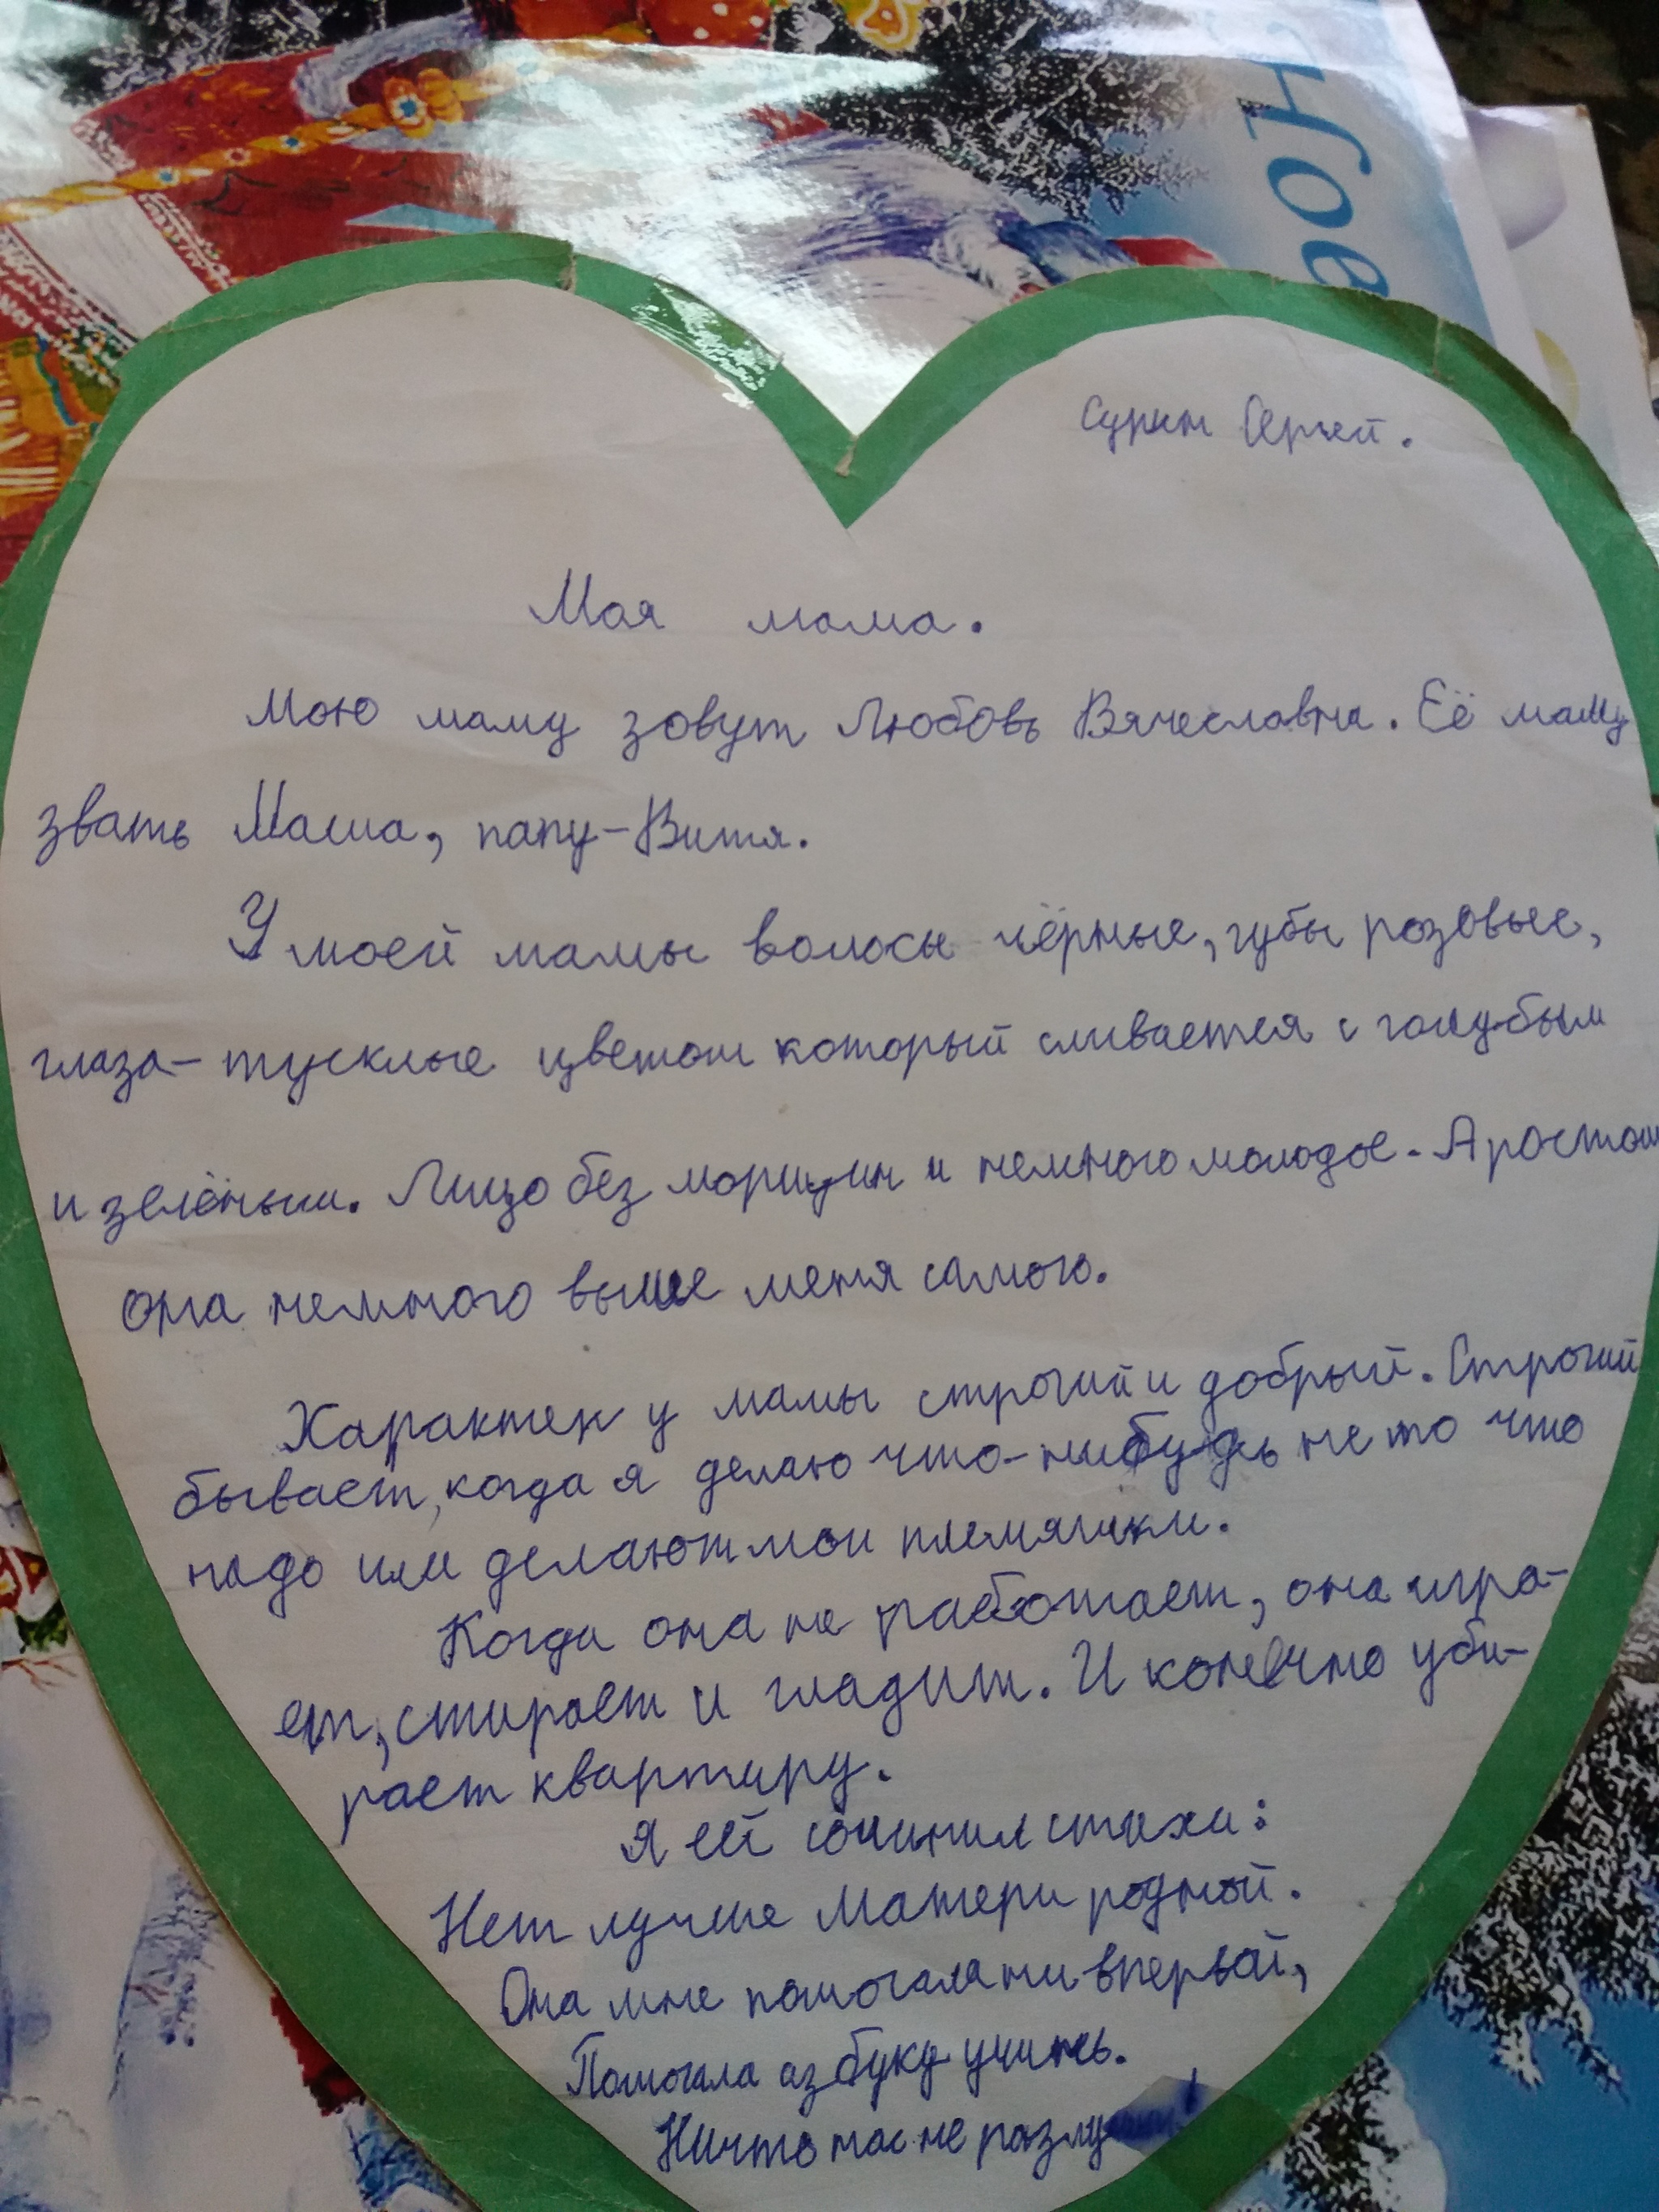 Нов
Сурин Сергей.
Моя мама.
Мою маму зовут Любовь Вячеславна. Её маму
звать Маша, папу-Витя.
У моей мамы волосы чёрные, губы розовые,
глаза-тусклые цветом который сливается с голубым
и зелёным. Лицо без морщин и немного молодое. А ростом
она немного выше меня самого.
Характер у мамы строгий и добрый. Строгий
бывает, когда я делаю что-нибудь не то что
надо или делают мои племяшки.
Когда она не работает, она игра-
ет, стирает и гладит. И конечно уби-
рает квартиру.
Я ей сочинил стихи:
Нет лучше Матери родной.
Она мне помогала ни впервой,
Помогала азбуку учить.
Ничто нас не